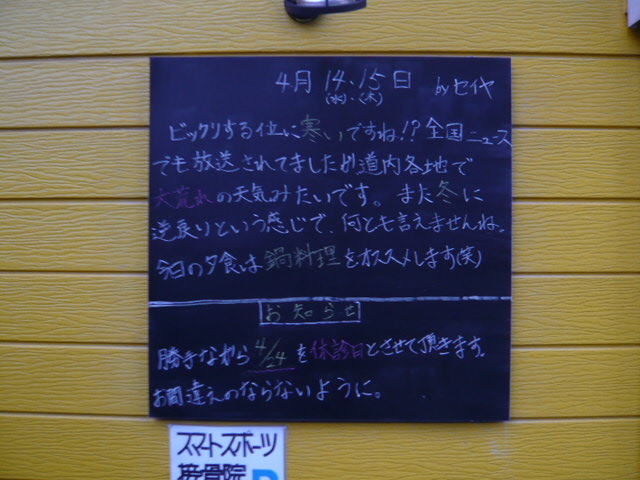 4月 14・15日 by セイヤ
(水)・(木)
ビックリする位に寒いですね!? 全国ニュース
でも放送されてましたが道内各地で
大荒れの天気みたいです。また冬に
逆戻りという感じで、何とも言えませんね。
今日の夕食は鍋料理をオススメします(笑)
お知らせ
勝手ながら 4/24 を休診日とさせて頂きます。
お間違えのならないように。
スマートスポーツ
接骨院